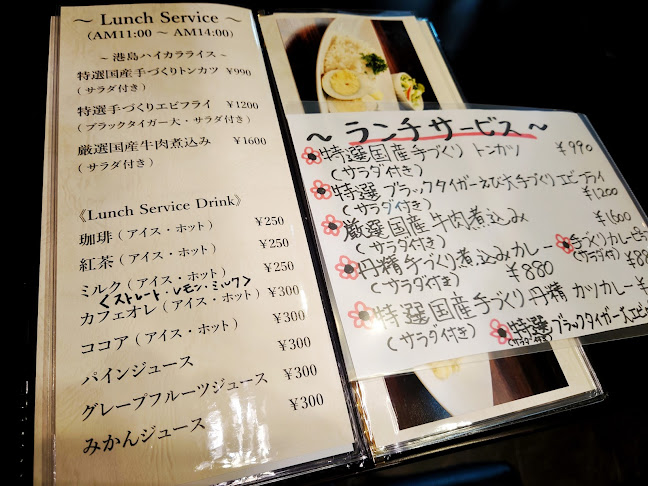 ～ Lunch Service ～
(AM11:00 ～ AM14:00)
～ 港島ハイカラライス ～
特選国産手づくりトンカツ ¥990
(サラダ付き)
特選手づくりエビフライ ¥1200
(ブラックタイガー大・サラダ付き)
厳選国産牛肉煮込み ¥1600
(サラダ付き)
《Lunch Service Drink》
珈琲 (アイス・ホット) ¥250
紅茶 (アイス・ホット) ¥250
ミルク (アイス・ホット) ¥250
<ストレート・レモン・ミルク>
カフェオレ (アイス・ホット) ¥300
ココア (アイス・ホット) ¥300
パインジュース ¥300
グレープフルーツジュース ¥300
みかんジュース
～ ランチサービス ～
特選国産手づくり トンカツ ¥990
(サラダ付き)
特選 ブラックタイガーえび大手づくりエビフライ
(サラダ付き) ¥1200
厳選国産牛肉煮込み ¥1600
(サラダ付き)
丹精手づくり煮込みカレー ¥880
(サラダ付き)
手づくりカレー
(サラダ付)
特選国産手づくり丹精カツカレー ¥
(サラダ付き)
特選ブラックタイガー大エビ
(サラダ付き)